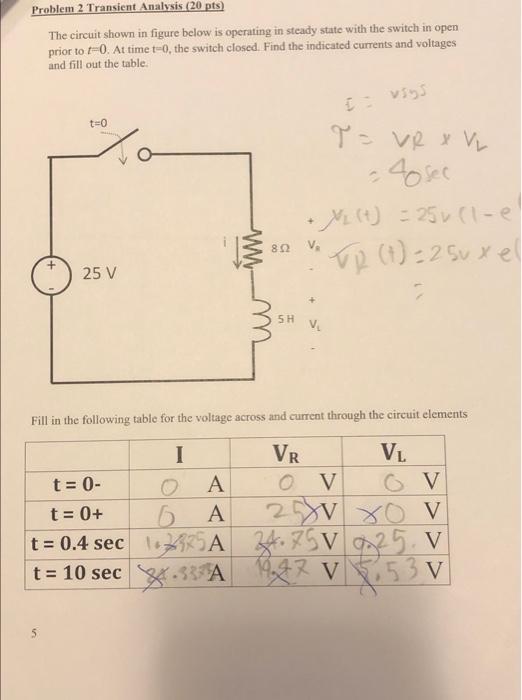 Problem 2 Transient Analysis (20 pts)
The circuit shown in figure below is operating in steady state with the switch in open
prior to t=0. At time t=0, the switch closed. Find the indicated currents and voltages
and fill out the table.
i = vsys
t=0
τ = VR x VL
= 40sec
+ VL(t) = 25v(1-e
i 8Ω VR
VR(t)=25v x e(
-
=
+
-
25 V
+
5 H VL
-
Fill in the following table for the voltage across and current through the circuit elements
I VR VL
t = 0- 0 A 0 V 0 V
t = 0+ A 25 V 0 V
t = 0.4 sec A 24.75 V 9.25 V
t = 10 sec A 19.47 V 5.53 V
5